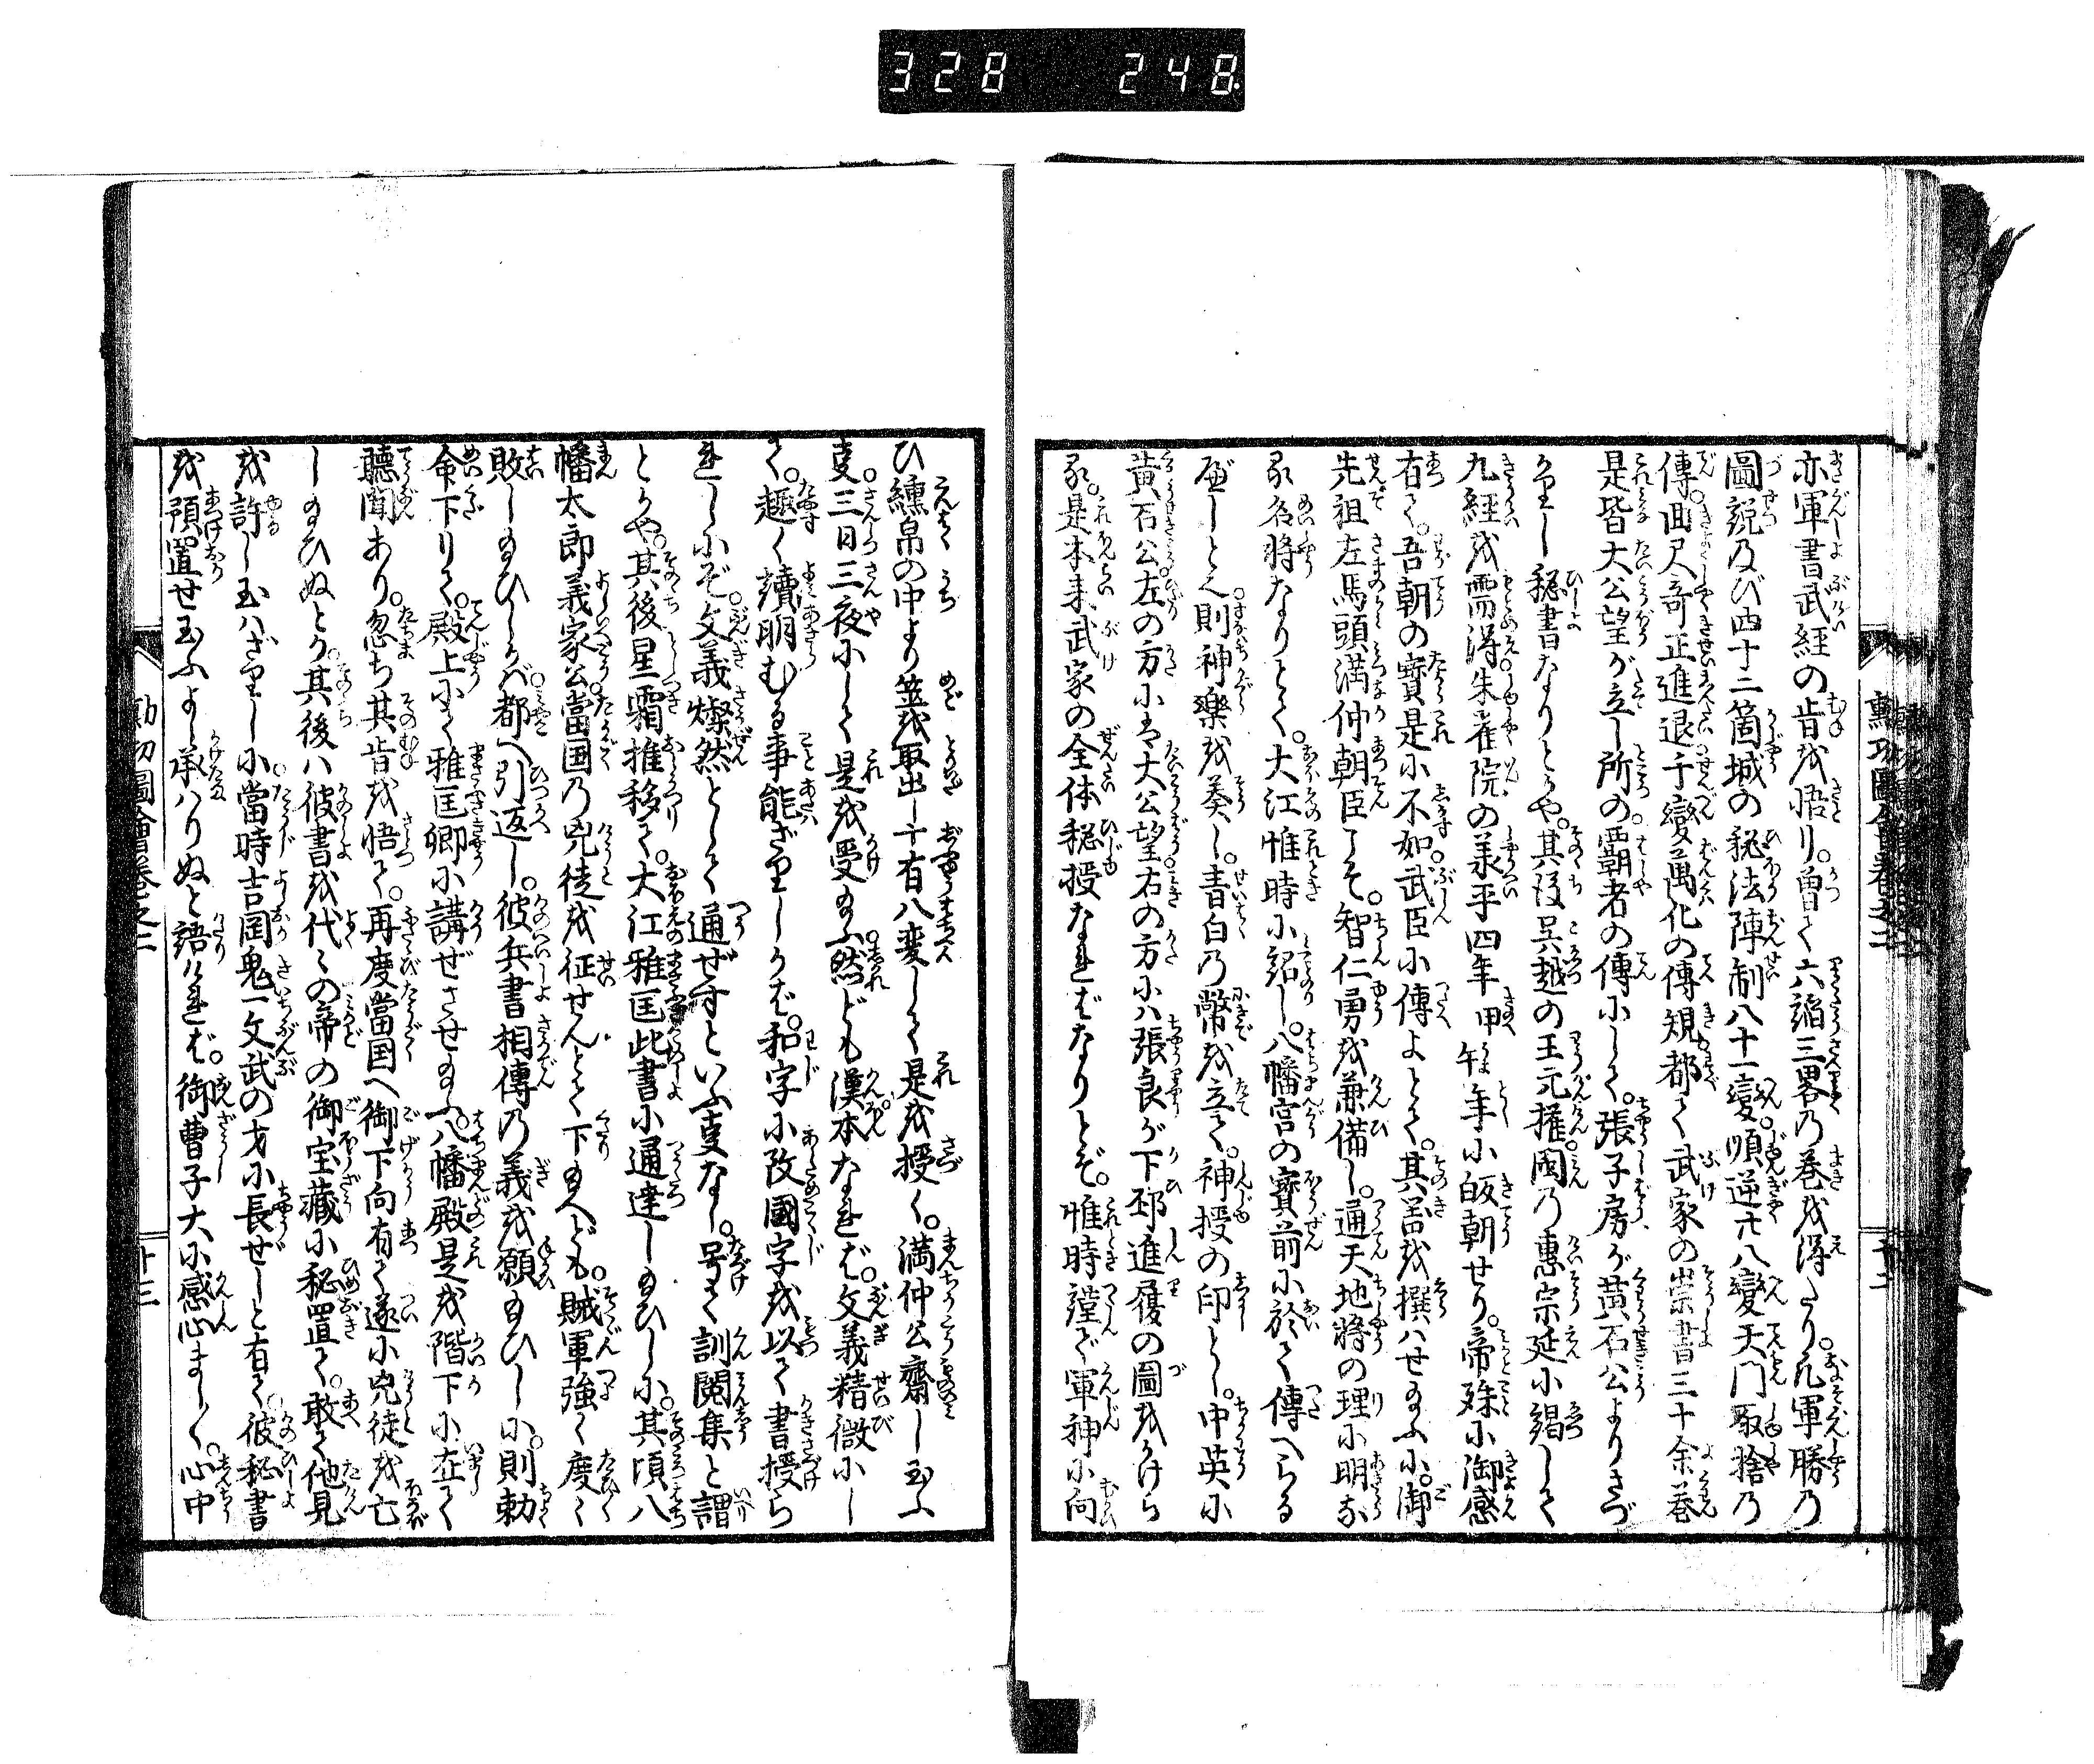 328 248
亦軍書武経の旨を悟り。曽て六韜三畧乃巻を得たり。凡軍勝乃
圖説及び四十二箇城の秘法陣制八十一變。順逆六八變天門取捨乃
傳曲尺竒正進退千變萬化の傳規都て武家の崇書三十余巻
是皆大公望が立し所の。覇者の傳にして。張子房が黄石公よりさづ
かりし秘書なりとかや。其後呉越の王元権。閩乃惠宗延に謁して
九経を需得朱雀院の承平四年甲午年に皈朝せり。帝殊に御感
有て。吾朝の寳是に不如。武臣に傳よとて。其器を撰はせ給ふに。御
先祖左馬頭満仲朝臣こそ。智仁勇を兼備し。通天地將の理に明な
る名將なりとて。大江惟時に詔し。八幡宮の寳前に於て傳へらる
べしと也。則神樂を奏し。青白乃幣を立て。神授の印とし。中英に
黄石公左の方には大公望右の方には張良が下邳進履の圖をかけら
る。是本来武家の全体秘授なればなりとぞ。惟時謹で軍神に向
勲功圖會巻之二
十二
ひ纁帛の中より筮を取出し十有八変して是を授く。満仲公齋し玉ふ
事。三日三夜にして是を受給ふ。然ども漢本なれば。文義精微にし
て。趣く讀明むる事能ざりしかば。和字に改國字を以て書授ら
れしにぞ。文義燦然として通ぜずといふ事なし。号て訓閲集と謂
とかや。其後星霜推移て。大江雅匡此書に通達し給ひしに。其頃八
幡太郎義家公。當国乃兇徒を征せんとて下給へども。賊軍強く度々
敗し給ひしかば。都へ引返し。彼兵書相傳乃義を願給ひしに。則勅
命下りて。殿上にて雅匡卿に講ぜさせ給ふ。八幡殿是を階下に在て
聽聞あり。忽ち其旨を悟て。再度當国へ御下向有て遂に兇徒を亡
し給ひぬとか。其後ハ彼書を代々の帝の御宝藏に秘置て。敢て他見
を許し玉ハざりしに。當時吉岡鬼一文武の才に長ぜしと有て。彼秘書
を預置せ玉ふよし承ハりぬと語ければ。御曹子大に感心まし〳〵。心中
勲功圖會巻之二
十三